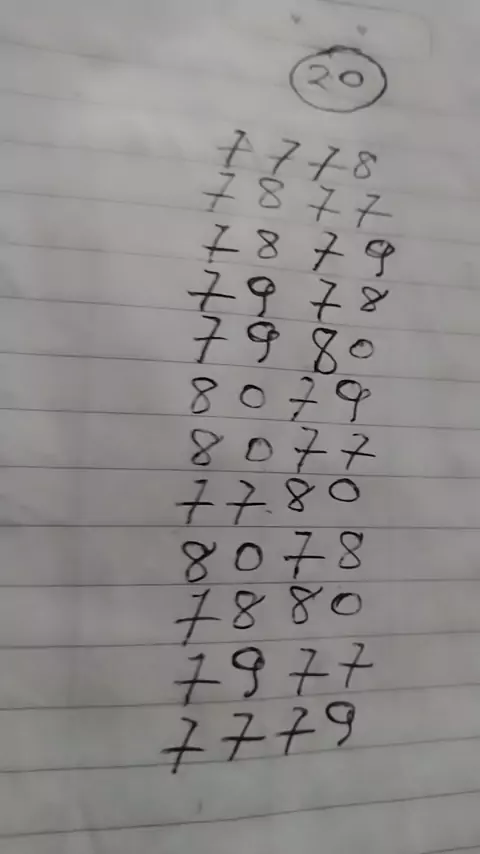 20
7 7 7 8
7 8 7 7
7 8 7 9
7 9 7 8
7 9 8 0
8 0 7 9
8 0 7 7
7 7 8 0
8 0 7 8
7 8 8 0
7 9 7 7
7 7 7 9